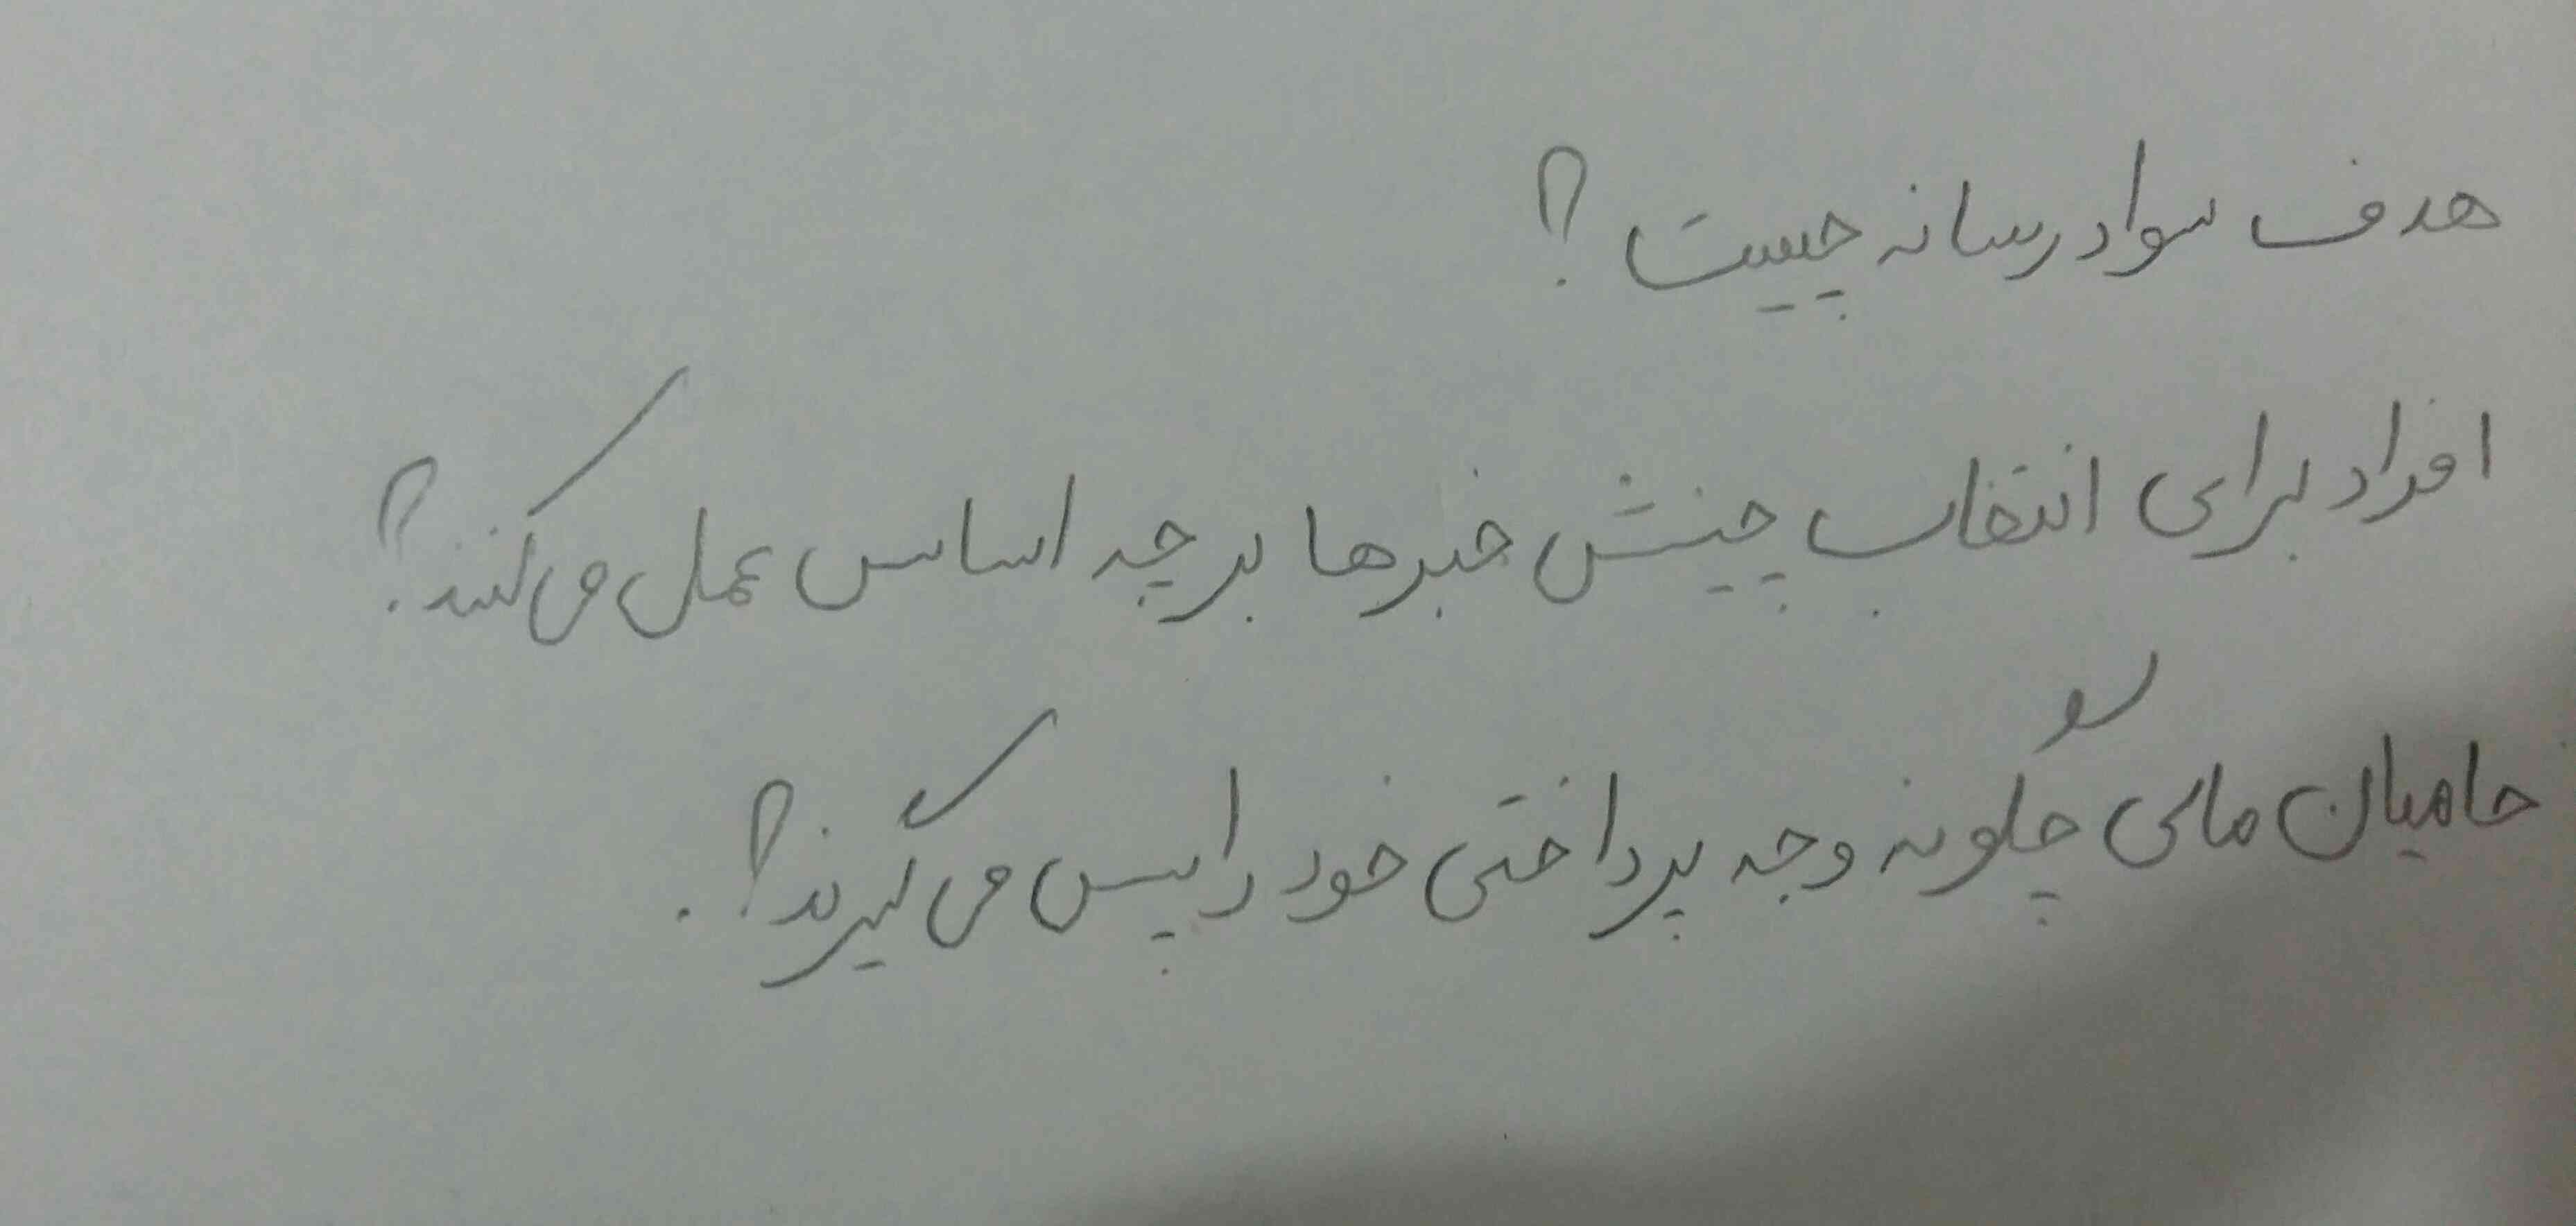 هدف سواد رسانه چیست؟
افراد برای انتخاب چینش خبرها بر چه اساس عمل می‌کنند؟
حامیان مالی چگونه وجه پرداختی خود را پس می‌گیرند؟.